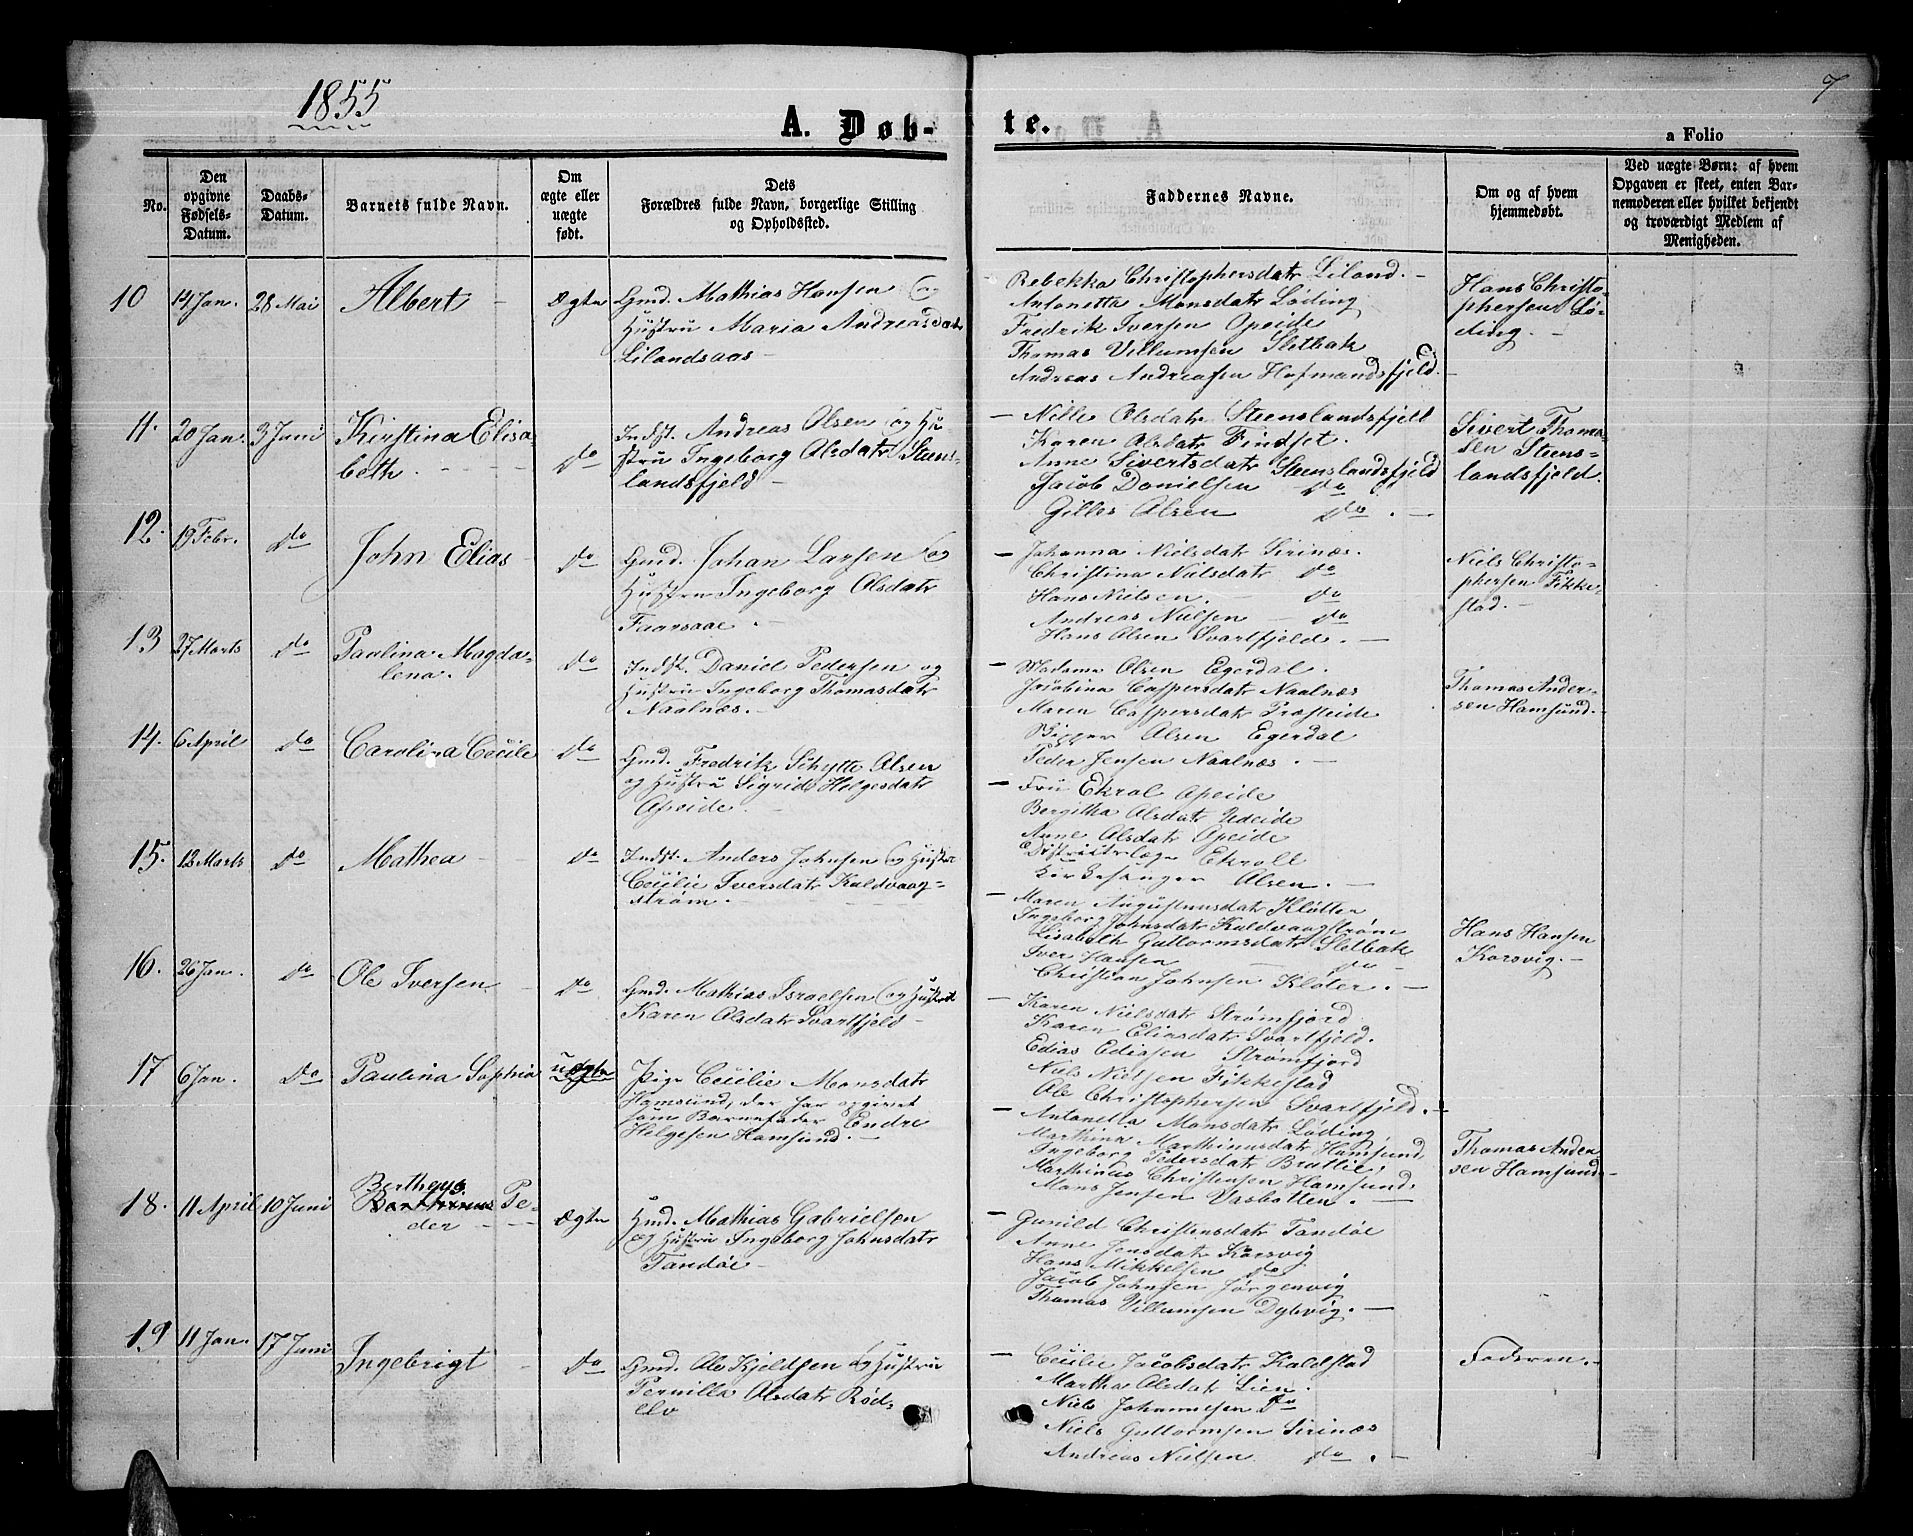 1855
7
A. Døb-
te.
a Folio
No.
Den opgivne Fødsels-Datum.
Daabs-Datum.
Barnets fulde Navn.
Om ægte eller uægte født.
Dets Forældres fulde Navn, borgerlige Stilling og Opholdssted.
Faddernes Navne.
Om og af hvem hjemmedøbt.
Ved uægte Børn: af hvem Opgaven er skeet, enten Barnemoderen eller hvilket bekjendt og troværdigt Medlem af Menigheden.
10 14 Jan. 28 Mai Albert Ægte
Gmd. Mathias Hansen og
Hustru Maria Andreasdatr
Lilandsaas
Rebekka Christophersdatr Liland.
Antonetta Monsdatr Løding
Fredrik Iversen Opeide
Thomas Villumsen Sletbak
Andreas Andreassen Hofmandsfjeld.
Hans Christo-
phersen Lø-
ding.
11. 20 Jan. 3 Juni Kirstina Elisa
beth. do
Indst. Andreas Olsen og Hu-
stru Ingeborg Olsdatr Steens-
landsfjeld
Nille Olsdatr Steenslandsfjell
Karen Olsdatr Findset.
Anne Sivertsdatr Steenslandsfjeld
Jacob Danielsen do
Gilles Olsen do.
Sivert Thoma-
sen Steens-
landsfjeld.
12. 19 Febr. do John Elias do
Gmd. Johan Larsen og
Hustru Ingeborg Olsdatr
Johanna Nielsdatr Sirinæs.
Christina Nielsdatr do
Hans Nielsen. do
Andreas Nielsen do
Hans Olsen Svartfjeld.
Niels Christo-
phersen Fikke-
stad.
13 27 Marts do Paulina Magda-
lena. do
Indst. Daniel Pedersen og
Hustru Ingeborg Thomasdatr
Naalnæs.
Madame Olsen Egerdal.
Jacobina Caspersdatr Naalnæs
Maren Caspersdatr Presteide
Olsen Egerdal
Peder Jensen Naalnæs.
Thomas Ander-
sen Hamsund.
14. 6 April do Carolina Cecilie do
Gmd. Fredrik Schytte Olsen
og Hustru Sigrid Helgesdatr
Opeide.
Fru Ekrol Opeide
Bergitha Olsdatr Udeide
Anne Olsdatr Opeide
Districtslæge Ekroll
Kirkesanger Olsen.
15. 12 Marts do Mathea do
Indst. Anders Johnsen og Hustru
Cecilie Iversdatr Kaldvaag-
strøm.
Maren Augustinusdatr Kløtten
Ingeborg Johnsdatr Kaldvaagstrøm
Lisabeth Guttormsdatr Sletbak
Iver Hansen do
Christian Johnsen Kløter.
Hans Hansen
Korsvig.
16. 26 Jan. do Ole Iversen. do
Gmd. Mathias Israelsen og Hustru
Karen Olsdatr Svartfjeld
Karen Nielsdatr Strømfjord
Karen Eliasdatr Svartfjeld.
Edias Ediasen Strømfjord
Niels Nielsen Fikkestad
Ole Christophersen Svartfjeld.
17 6 Jan. do Paulina Sophia uægte
Pige Cecilie Monsdatr
Hamsund, der har opgivet
som Barnefader Endre
Helgesen Hamsund.
Antonetta Monsdatr Løding,
Marthina Marthinusdatr Hamsund
Ingeborg Pedersdatr Brattlie,
Marthinus Christensen Hamsund,
Mons Jensen Vasbotten.
Thomas Ander
sen Hamsund
18. 11 April 10 Juni Bertheus
Pe-
der Ægte
Gmd. Mathias Gabrielsen
og Hustru Ingeborg Johnsdatr
Tandøe
Gunild Christensdatr Tandøe
Anne Jensdatr Korsvig
Hans Mikkelsen do
Jacob Johnsen Jørgenvig
Thomas Villumsen Dybvig.
19 11 Jan. 17 Juni Ingebrigt do
Gmd. Ole Kjeldsen og Hustru
Pernilla Olsdatr Rød-
elv
Cecilie Jacobsdatr Kaldstad
Martha Olsdatr Lien.
Niels Johannesen do
Niels Guttormsen Sirinæs
Andreas Nielsen do.
Faderen.